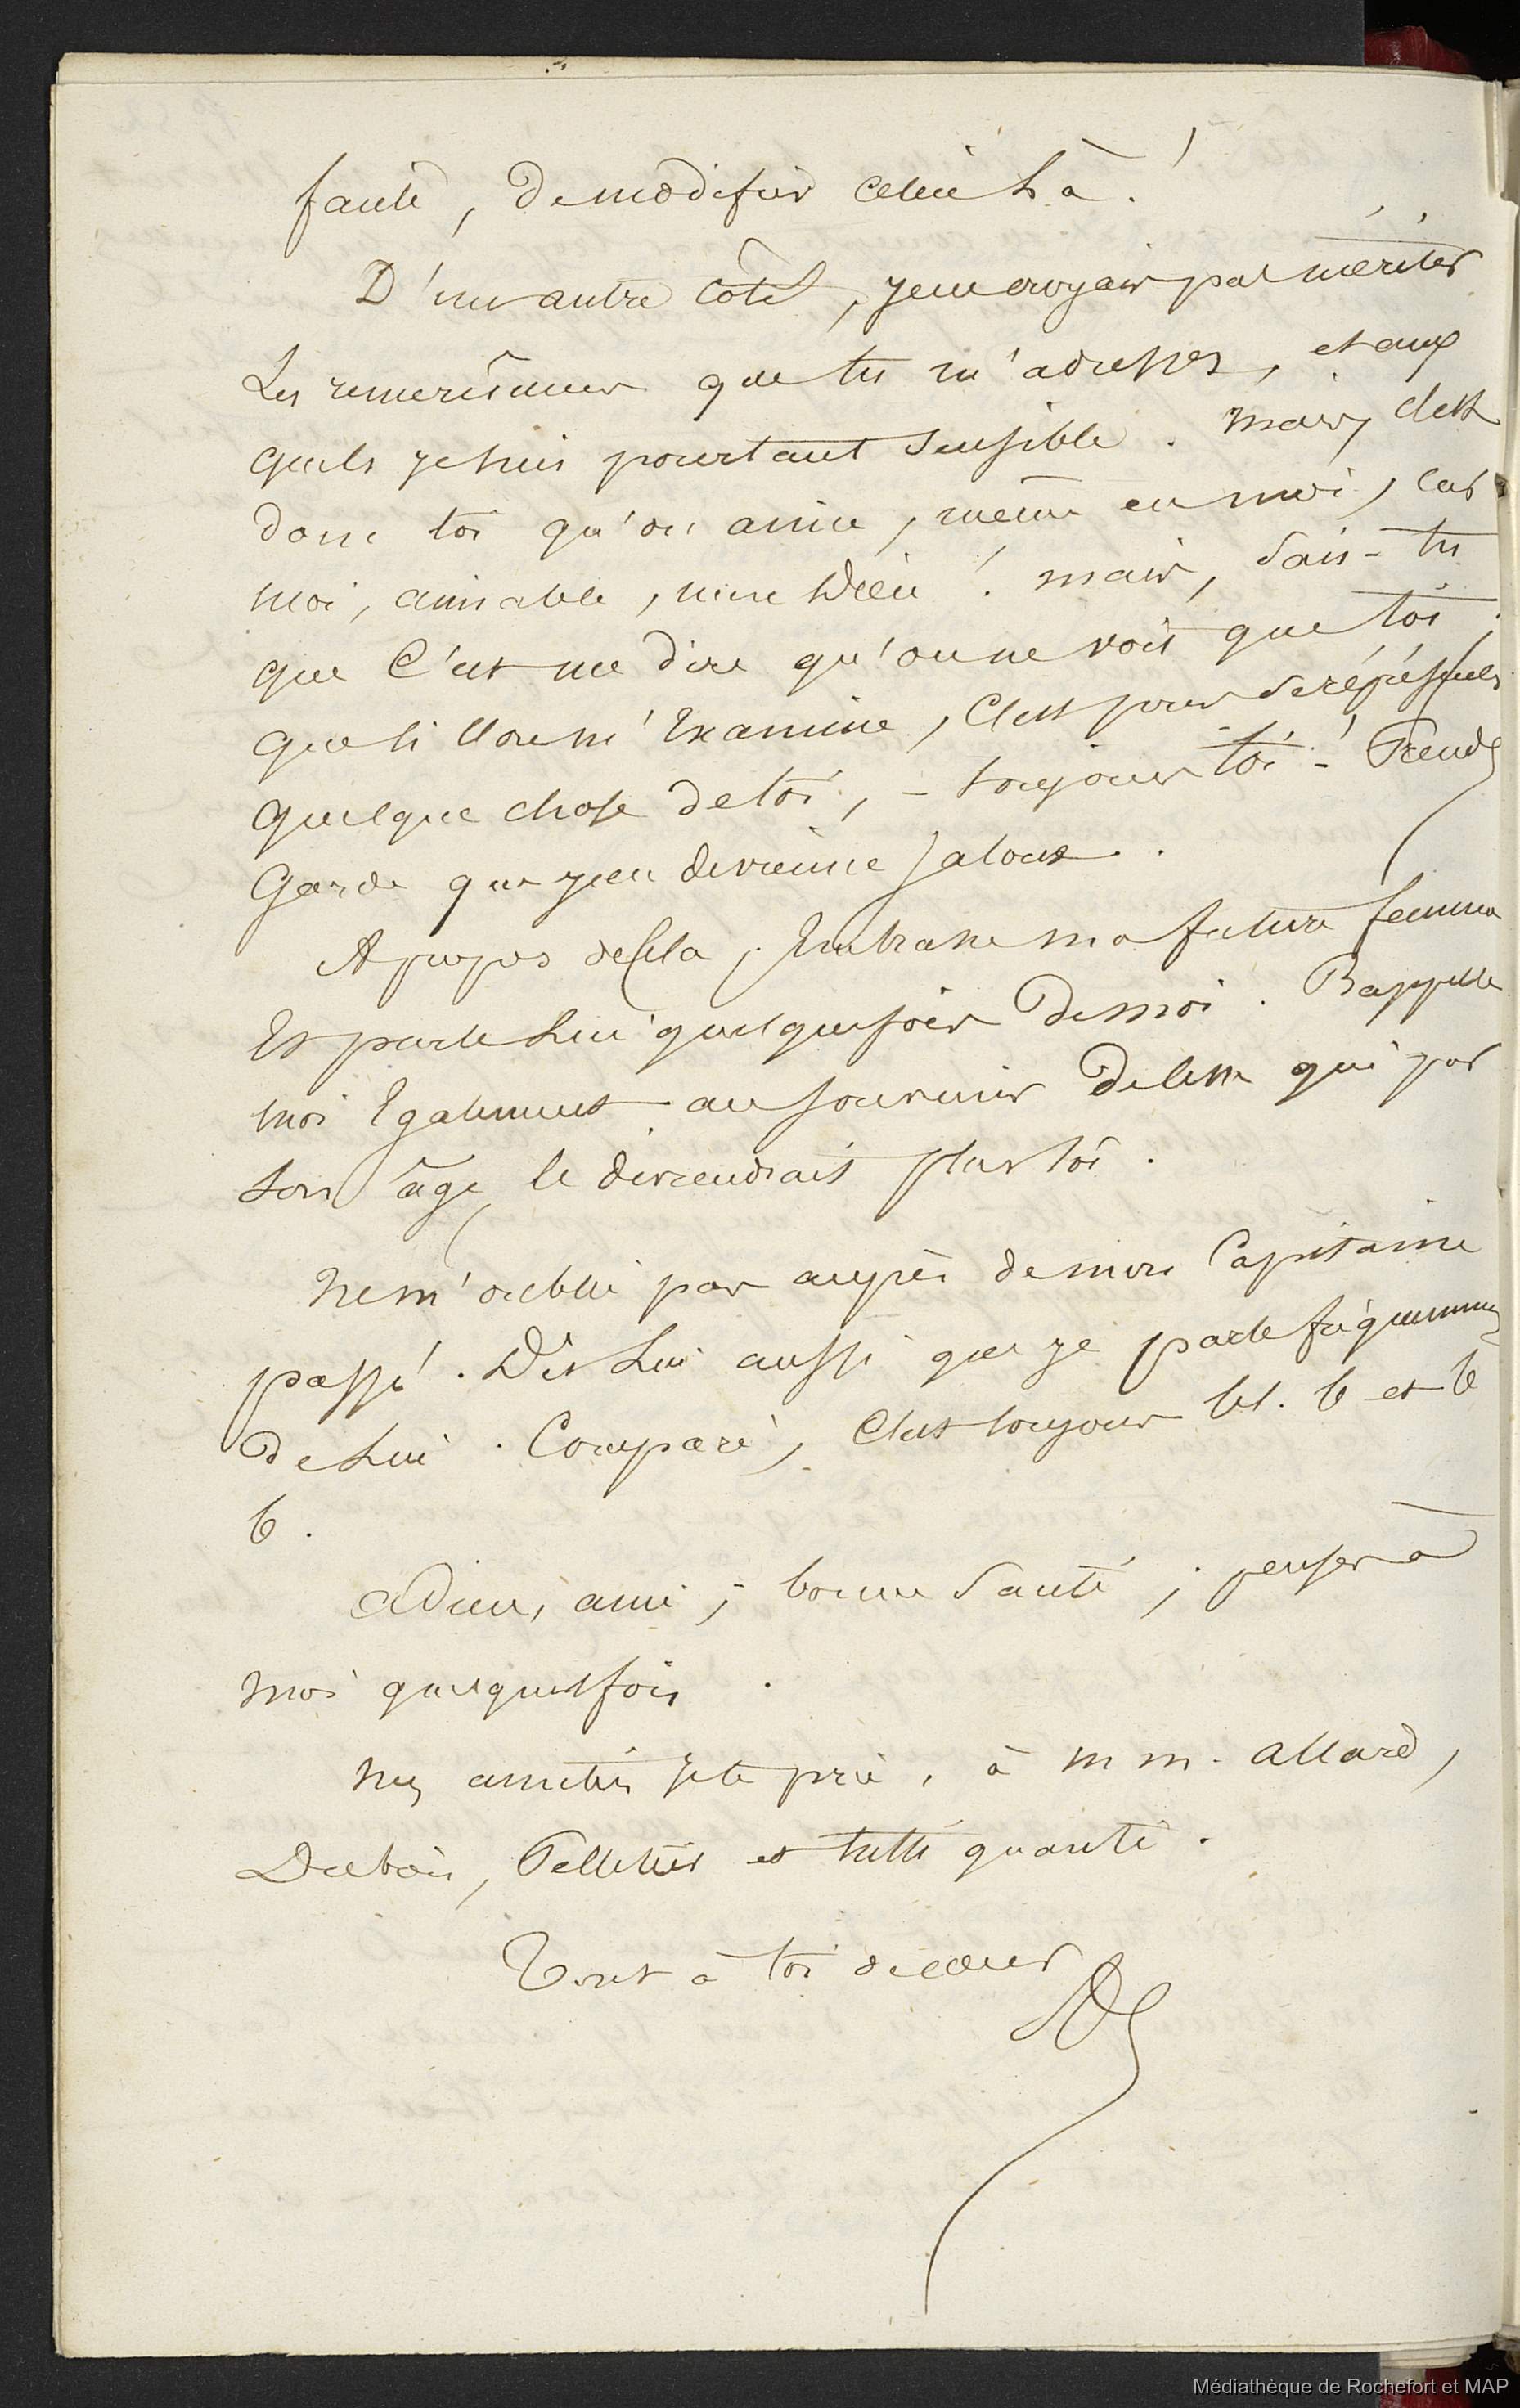 faute, de modifier celui là !
D'un autre côté, je ne croyais pas mériter
Les remercîmens que tu m'adresses, et aux
quels je suis pourtant sensible. Mais, c'est
donc toi qu'on aime, même en moi, car
moi, aimable, mon Dieu ! mais, sais-tu
que c'est me dire qu'on ne voit que toi,
que si l'on m'examine, c'est pour
quelque chose de toi, - toujours toi - ! Prends
Garde que j'en devienne jaloux.
A propos de cela, Embrasse ma future femme
Et parle Lui quelquefois de moi. Rappelle
moi Egalement au souvenir de celle qui par
son âge, le deviendrait plus tôt.
Ne m'oublie pas auprès de mon Capitaine
passé. Dis Lui aussi que je parle fréquemment
de Lui. Comparé, c'est toujours b. b et b
b.
Adieu, ami ; bonne Santé ; penses à
moi quelquesfois.
Mes amitiés je te prie, à m m. Allard,
Dubois, Pelletier et tutti quanti.
Tout à toi de cœur